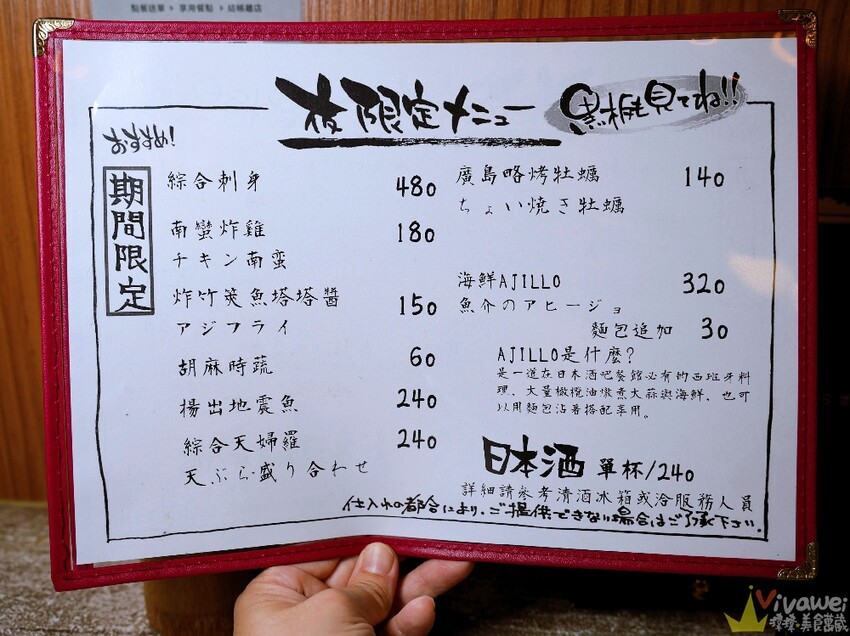 點餐送單 > 享用餐點 > 結帳離店
夜限定メニュー
黒板も見てね!!
おすすめ!
期間限定
綜合刺身 480
南蠻炸雞 180
チキン南蛮
炸竹筴魚塔塔醬 150
アジフライ
胡麻時蔬 60
揚出地震魚 240
綜合天婦羅 240
天ぷら盛り合わせ
廣島略烤牡蠣 140
ちょい焼き牡蠣
海鮮AJILLO 320
魚介のアヒージョ
麵包追加 30
AJILLO是什麼?
是一道在日本酒吧餐館必有的西班牙料
理、大量橄欖油燉煮大蒜與海鮮、也可
以用麵包沾著搭配享用。
日本酒 單杯/240
詳細請參考清酒冰箱或洽服務人員
仕入れの都合により、ご提供できない場合はご了承下さい。
Vivawei